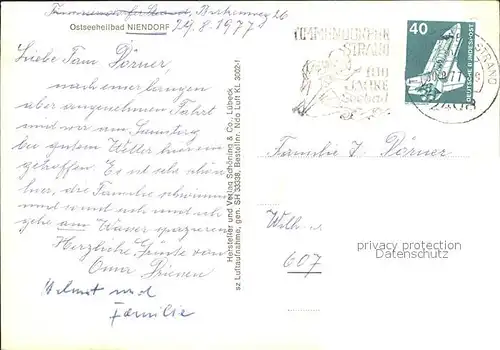 Timmendorfer Strand, Birkenweg 26
Ostseeheilbad NIENDORF 29.8.1977
Liebe Fam Dörner,
nach einer langen
aber angenehmen Fahrt
sind wir am Samstag
bei gutem Wetter hier ein-
getroffen. Es ist sehr schön
hier, die Familie schwimmt
und sonnt sich und ich
gehe am Wasser spazieren
Herzliche Grüße von
Oma
Helmut und
Familie
Hersteller und Verlag Schöning & Co., Lübeck
sz Luftaufnahme, gen. SH 33338, Bestellnr. Ndo Luft Kl. 3002-1
TIMMENDORFER
STRAND
100
JAHRE
Seebad
STRAND
40
DEUTSCHE BUNDESPOST
Familie J. Dörner
607
privacy protection
Datenschutz